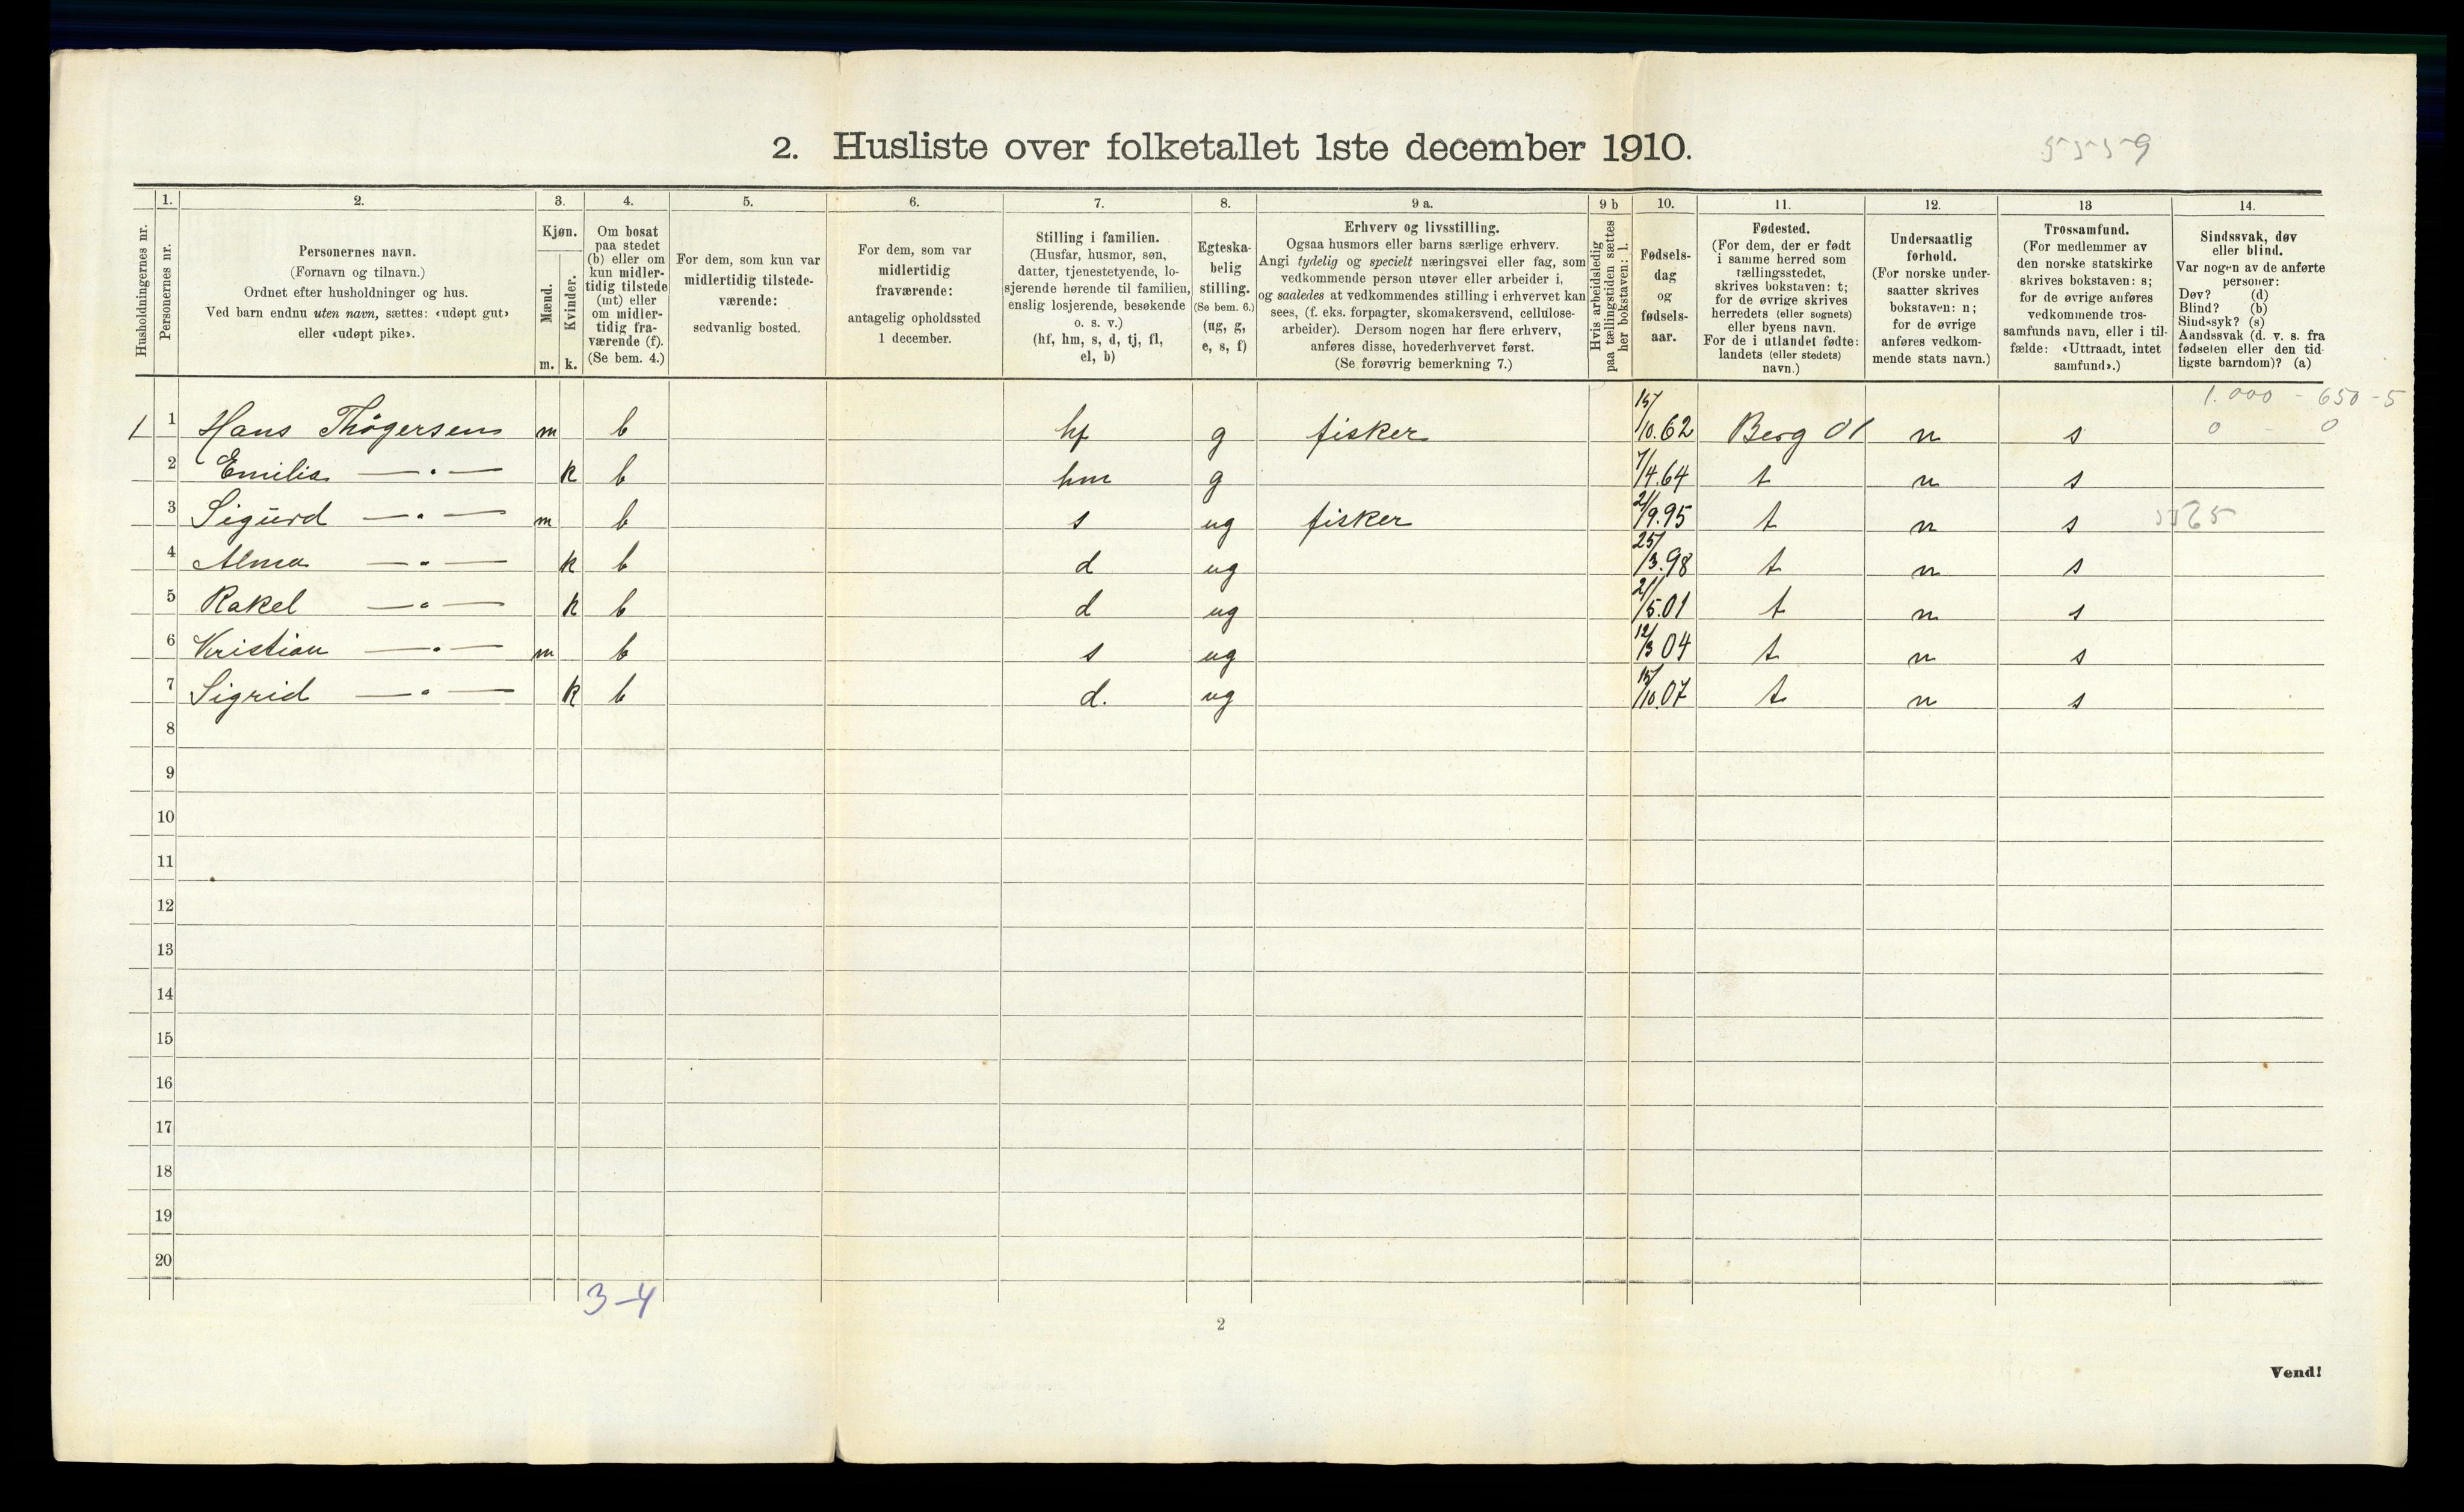 2. Husliste over folketallet 1ste december 1910.
5559
Husholdningernes nr.
1. Personernes nr.
2. Personernes navn. (Fornavn og tilnavn.) Ordnet efter husholdninger og hus. Ved barn endnu uten navn, sættes: «udøpt gut» eller «udøpt pike».
3. Kjøn. Mænd. m. Kvinder. k.
4. Om bosat paa stedet (b) eller om kun midlertidig tilstede (mt) eller om midlertidig fraværende (f). (Se bem. 4.)
5. For dem, som kun var midlertidig tilstedeværende: sedvanlig bosted.
6. For dem, som var midlertidig fraværende: antagelig opholdssted 1 december.
7. Stilling i familien. (Husfar, husmor, søn, datter, tjenestetyende, losjerende hørende til familien, enslig losjerende, besøkende o. s. v.) (hf, hm, s, d, tj, fl, el, b)
8. Egteskabelig stilling. (Se bem. 6.) (ug, g, e, s, f)
9 a. Erhverv og livsstilling. Ogsaa husmors eller barns særlige erhverv. Angi tydelig og specielt næringsvei eller fag, som vedkommende person utøver eller arbeider i, og saaledes at vedkommendes stilling i erhvervet kan sees, (f. eks. forpagter, skomakersvend, cellulosearbeider). Dersom nogen har flere erhverv, anføres disse, hovederhvervet først. (Se forøvrig bemerkning 7.)
9 b Hvis arbeidsledig paa tællingstiden sættes her bokstaven: l.
10. Fødselsdag og fødselsaar.
11. Fødested. (For dem, der er født i samme herred som tællingsstedet, skrives bokstaven: t; for de øvrige skrives herredets (eller sognets) eller byens navn. For de i utlandet fødte: landets (eller stedets) navn.)
12. Undersaatlig forhold. (For norske undersaatter skrives bokstaven: n; for de øvrige anføres vedkommende stats navn.)
13 Trossamfund. (For medlemmer av den norske statskirke skrives bokstaven: s; for de øvrige anføres vedkommende trossamfunds navn, eller i tilfælde: «Uttraadt, intet samfund».)
14. Sindssvak, døv eller blind. Var nogen av de anførte personer: Døv? (d) Blind? (b) Sindssyk? (s) Aandssvak (d. v. s. fra fødselen eller den tidligste barndom)? (a)
1.000 - 650 - 5
1 1 Hans Thøgersen m b hf g fisker 15/10.62 Berg 01 n s 0 - 0
2 Emilie —„— k b hm g 7/4.64 t n s
3 Sigurd —„— m b s ug fisker 21/9.95 t n s
4 Alma —„— k b d ug 25/3.98 t n s
5 Rakel —„— k b d ug 21/5.01 t n s
6 Kristian —„— m b s ug 12/3 04 t n s
7 Sigrid —„— k b d. ug 15/10.07 t n s
8
9
10
11
12
13
14
15
16
17
18
19
20
3-4
2
Vend!